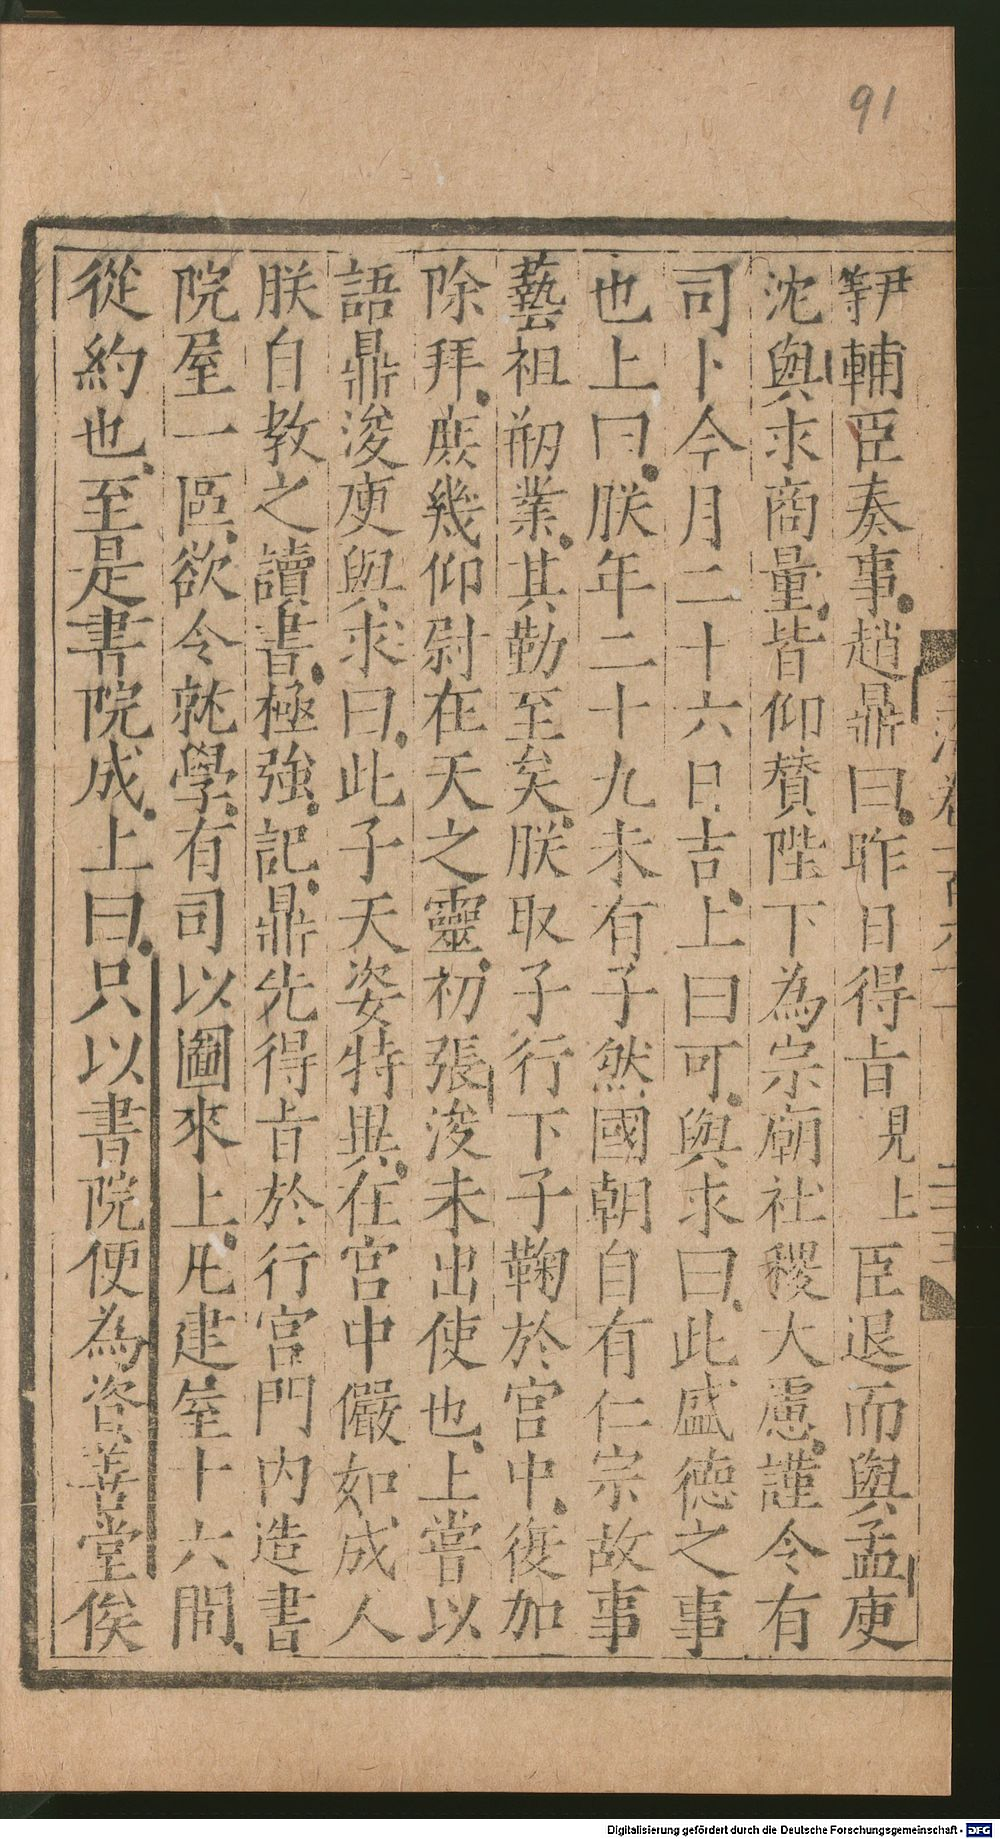 91
尹等輔臣奏事趙鼎曰昨日得旨見上臣退而與孟庾
沈與求商量皆仰贊陛下為宗廟社稷大慮謹令有
司卜今月二十六日吉上曰可與求曰此盛德之事
也上曰朕年二十九未有子然國朝自有仁宗故事
藝祖剏業其勤至矣朕取子行下子鞠於宮中復加
除拜庶幾仰尉在天之靈初張浚未出使也上嘗以
語鼎浚庾與求曰此子天姿特異在宮中儼如成人
朕自教之讀書極強記鼎先得旨於行宮門內造書
院屋一區欲令就學有司以圖來上凡建屋十六間
從約也至是書院成上曰只以書院便為資善堂俟
Digitalisierung gefördert durch die Deutsche Forschungsgemeinschaft - DFG